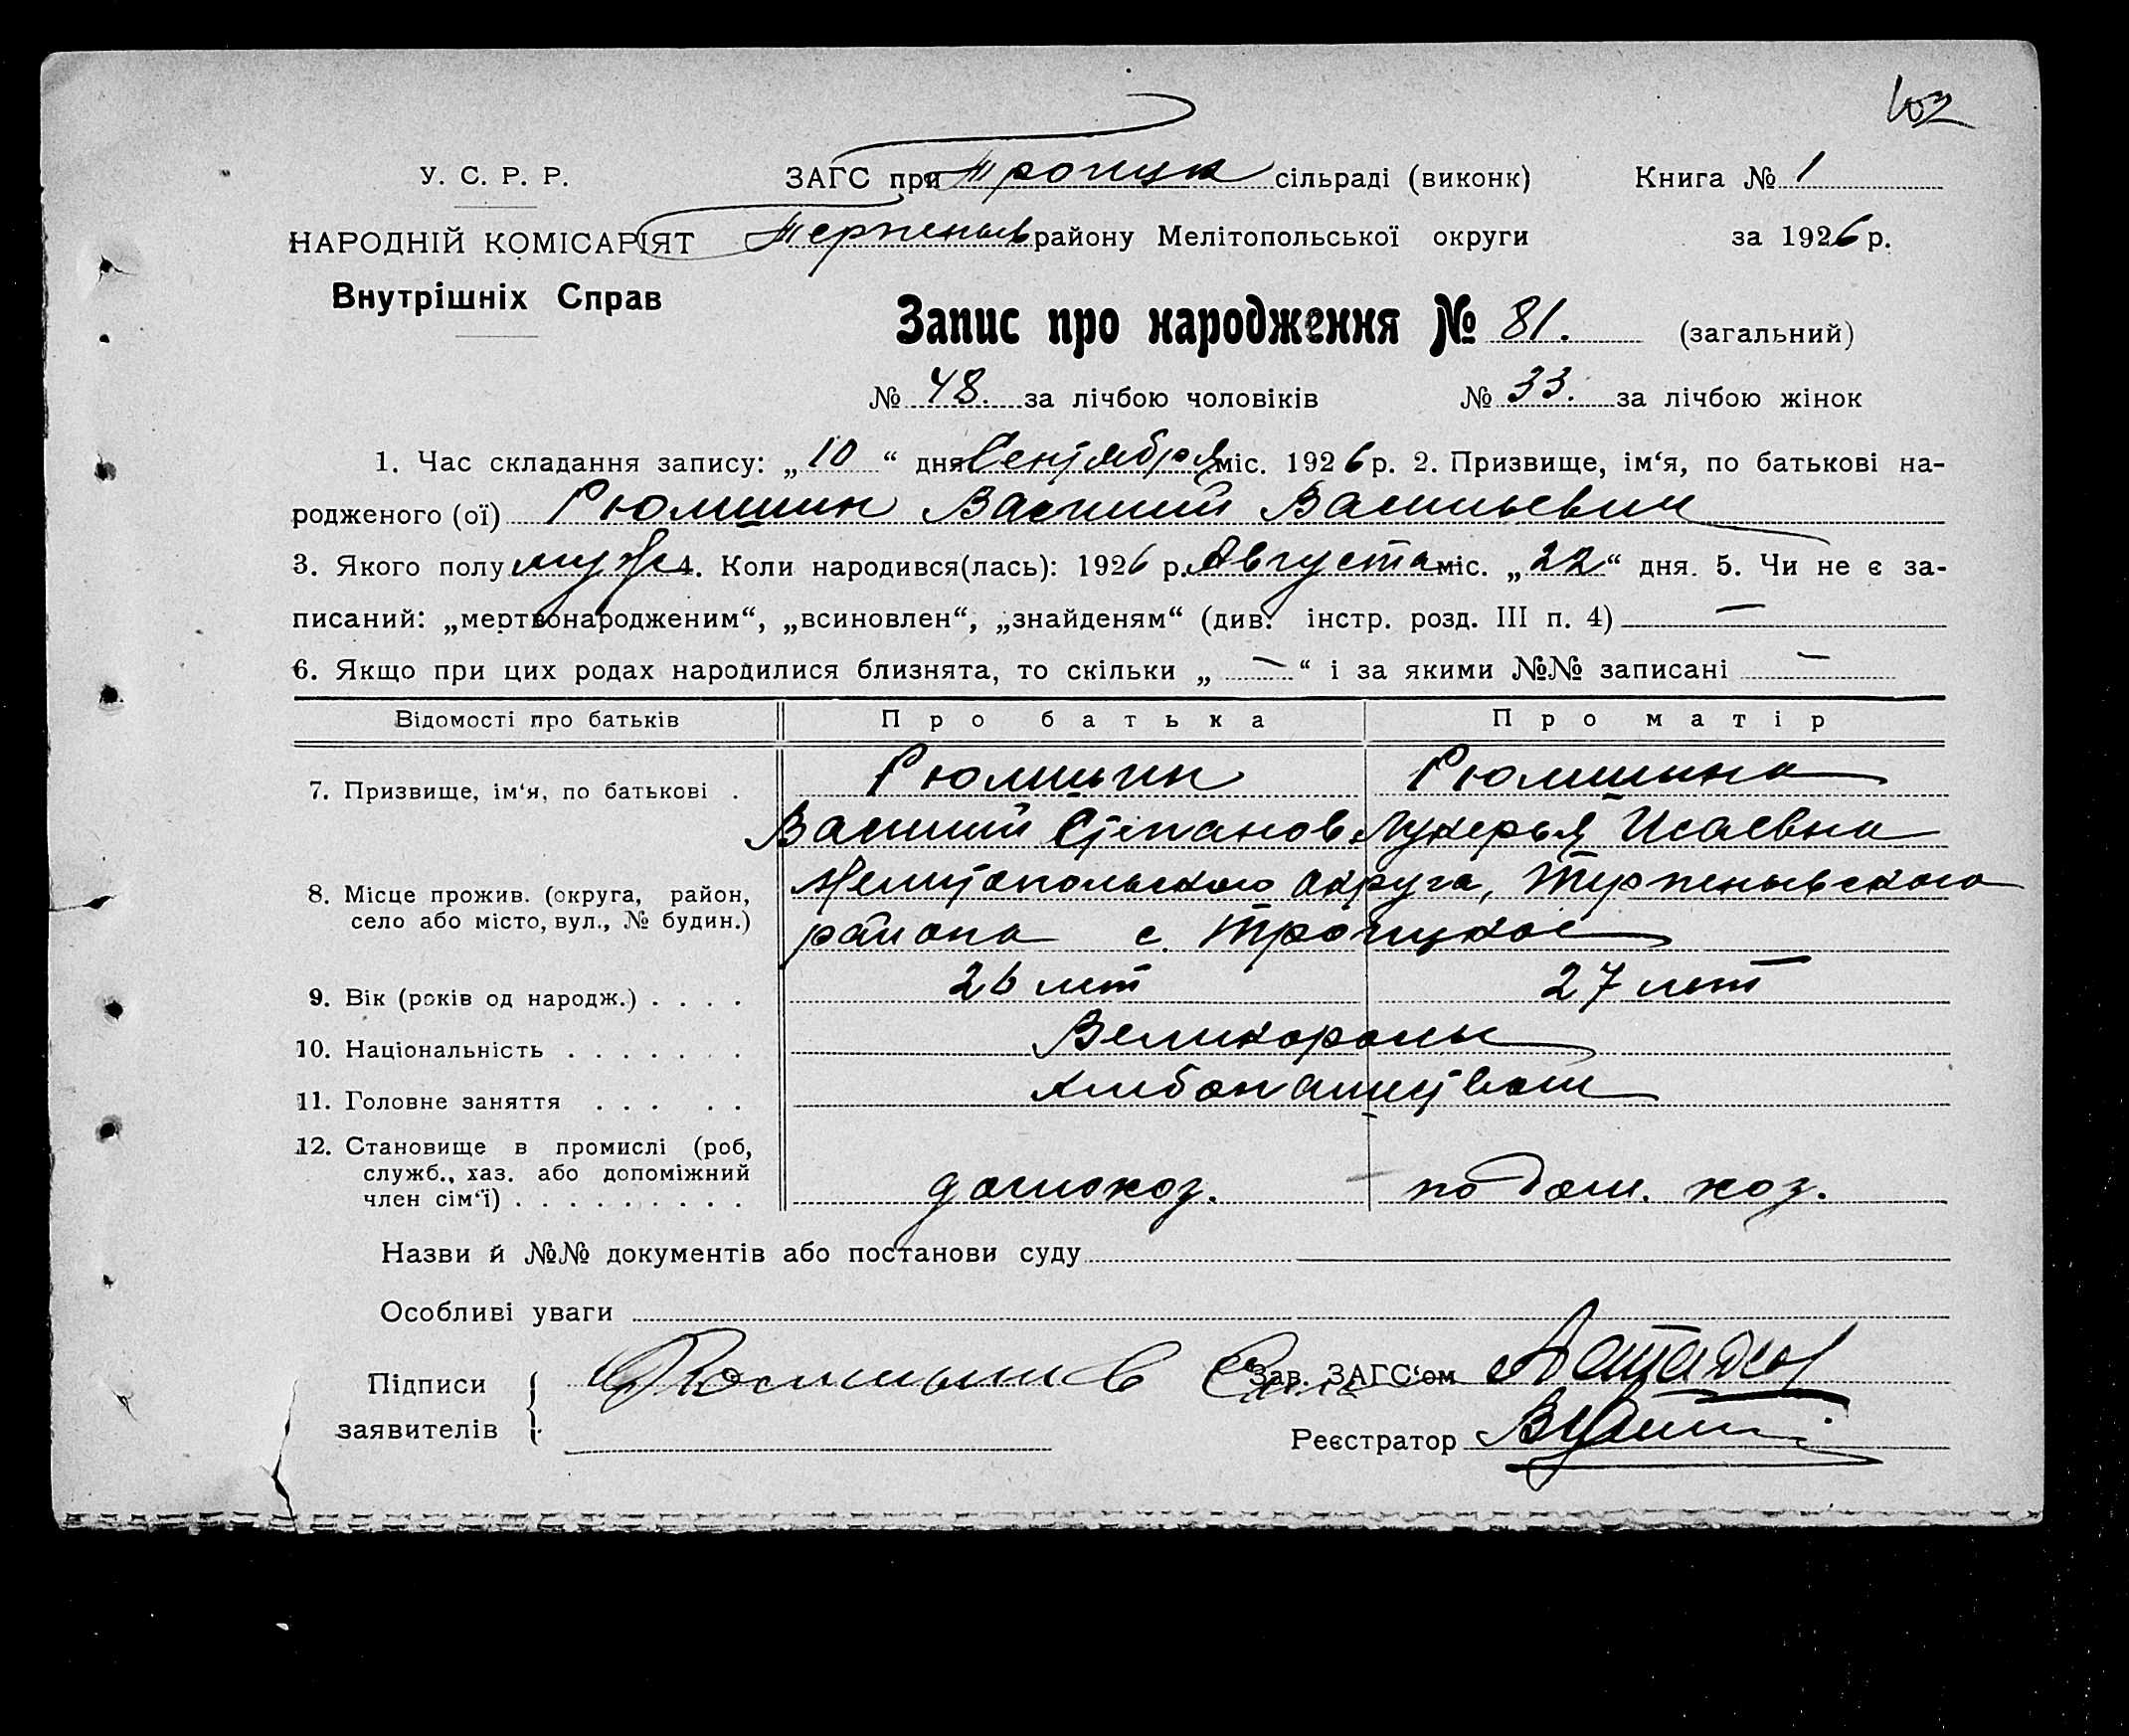 103
У. С. Р. Р. ЗАГС при Троицк сільраді (виконк) Книга № 1
НАРОДНІЙ КОМІСАРІЯТ Терпеньев району Мелітопольської округи за 1926 р.
Внутрішніх Справ
Запис про народження № 81. (загальний)
№ 48. за лічбою чоловіків № 33. за лічбою жінок
1. Час складання запису: „10“ дня Сентября міс. 1926 р. 2. Призвище, ім‘я, по батькові на-
родженого (ої) Рюмшин Василий Васильевич
3. Якого полу муж 4. Коли народився(лась): 1926 р. Августа міс. „22“ дня. 5. Чи не є за-
писаний: „мертвонародженим“, „всиновлен“, „знайденям“ (див. інстр. розд. III п. 4) —
6. Якщо при цих родах народилися близнята, то скільки „ — “ і за якими №№ записані —
Відомості про батьків Про батька Про матір
7. Призвище, ім‘я, по батькові . Рюмшин Рюмшина
Василий Степанов. Лукерья Исаевна
8. Місце прожив. (округа, район, Мелитопольского округа, Терпеньевского
село або місто, вул., № будин.) района с. Троицкое
9. Вік (років од народж.) . . . . 26 лет 27 лет
10. Національність . . . . . . . Великороссы
11. Головне заняття . . . . . Хлебопашеством
12. Становище в промислі (роб,
служб., хаз. або допоміжний
член сім‘ї) . . . . . . . . . домохоз. по дом. хоз.
Назви й №№ документів або постанови суду
Особливі уваги
Підписи Зав. ЗАГС‘ом
заявителів Реєстратор